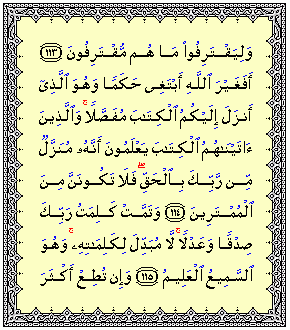 وَلِيَقْتَرِفُوا۟ مَا هُم مُّقْتَرِفُونَ ﴿١١٣﴾
أَفَغَيْرَ ٱللَّهِ أَبْتَغِى حَكَمًا وَهُوَ ٱلَّذِىٓ
أَنزَلَ إِلَيْكُمُ ٱلْكِتَـٰبَ مُفَصَّلًا ۚ وَٱلَّذِينَ
ءَاتَيْنَـٰهُمُ ٱلْكِتَـٰبَ يَعْلَمُونَ أَنَّهُۥ مُنَزَّلٌ
مِّن رَّبِّكَ بِٱلْحَقِّ ۖ فَلَا تَكُونَنَّ مِنَ
ٱلْمُمْتَرِينَ ﴿١١٤﴾ وَتَمَّتْ كَلِمَتُ رَبِّكَ
صِدْقًا وَعَدْلًا ۚ لَّا مُبَدِّلَ لِكَلِمَـٰتِهِۦ ۚ وَهُوَ
ٱلسَّمِيعُ ٱلْعَلِيمُ ﴿١١٥﴾ وَإِن تُطِعْ أَكْثَرَ